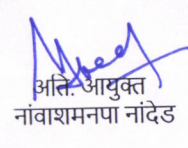 अति. आयुक्त
नांवाशमनपा नांदेड